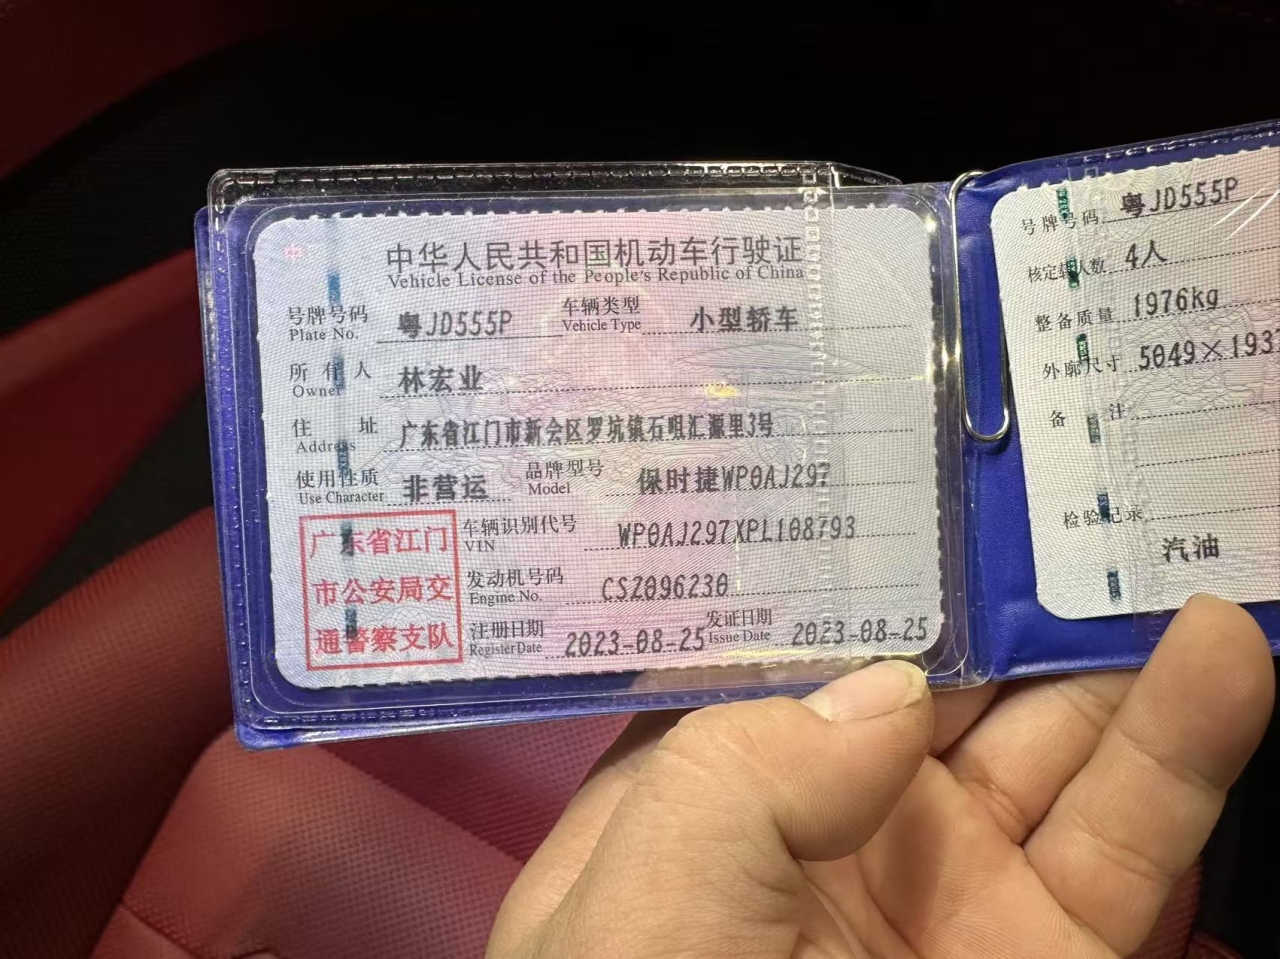 中华人民共和国机动车行驶证
Vehicle License of the People's Republic of China
号牌号码 粤JD555P 车辆类型 小型轿车
Plate No. Vehicle Type
所有人 林宏业
Owner
住址 广东省江门市新会区罗坑镇石咀汇源里3号
Address
使用性质 非营运 品牌型号 保时捷WP0AJ297
Use Character Model
车辆识别代号 WP0AJ297XPL108793
VIN
发动机号码 CSZ096230
Engine No.
注册日期 2023-08-25 发证日期 2023-08-25
Register Date Issue Date
广东省江门
市公安局交
通警察支队
号牌号码 粤JD555P
核定载人数 4人
整备质量 1976kg
外廓尺寸 5049×193
备注
检验记录
汽油